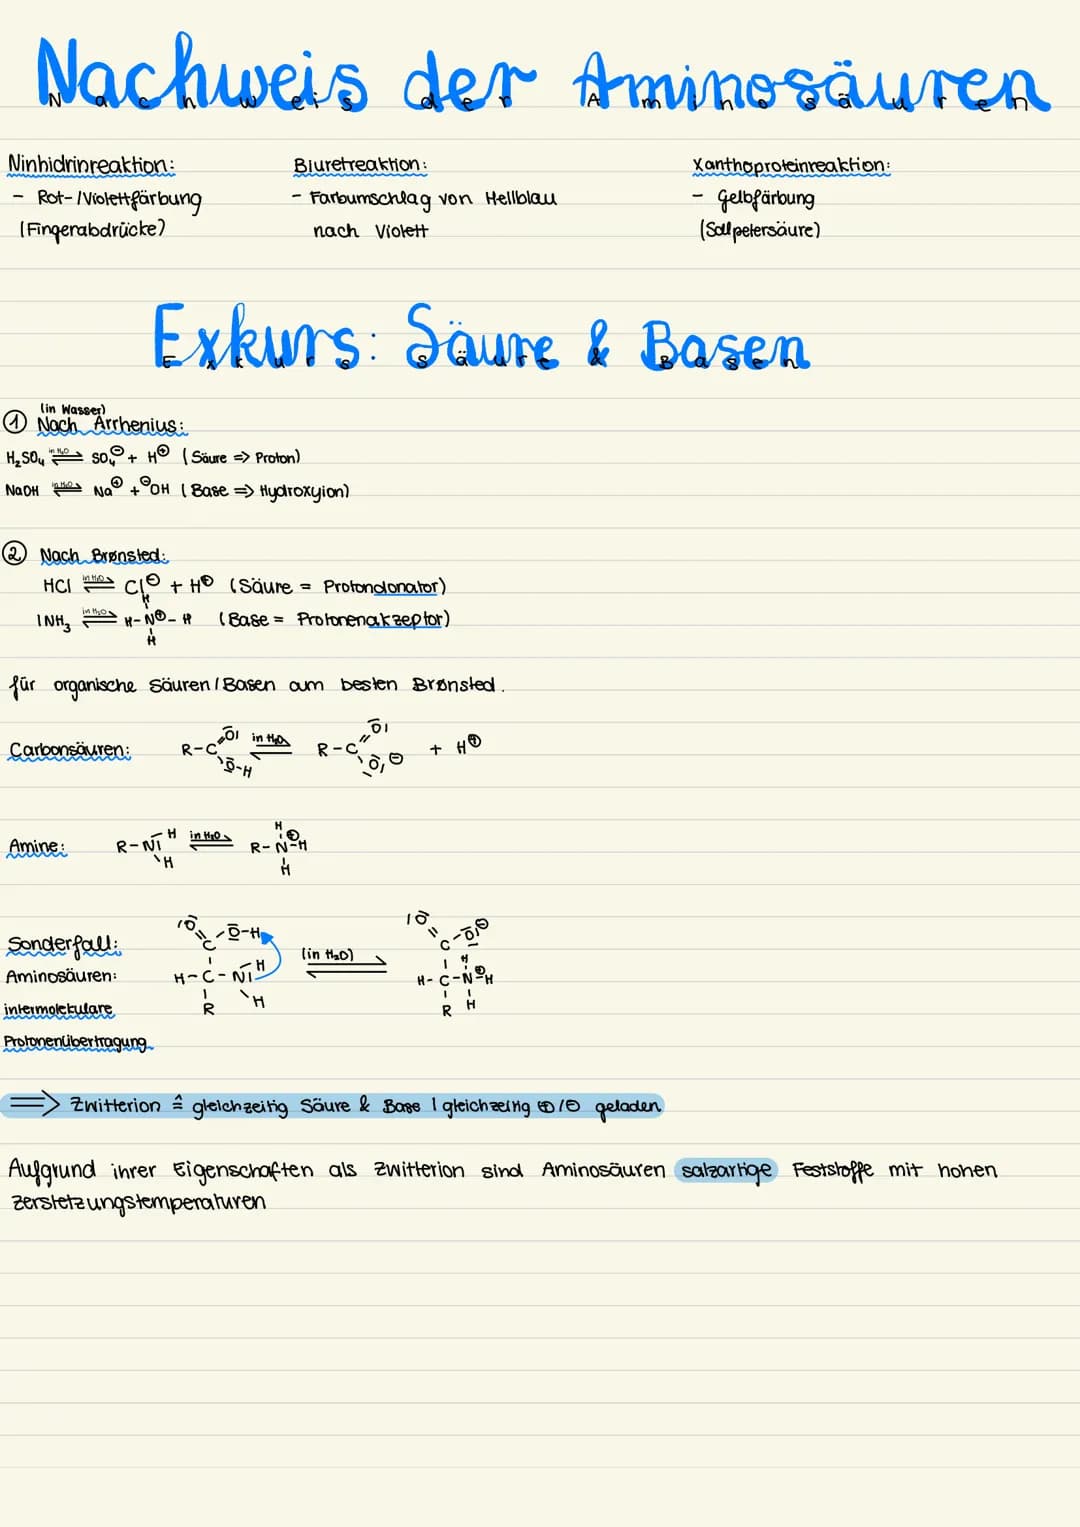 Nachweis der Aminosäuren
Ninhidrinreaktion:
- Rot-/Violettfärbung
(Fingerabdrücke)
Biuretreaktion:
- Farbumschlag von Hellblau
nach Violett
Xanthoproteinreaktion:
- Gelbfärbung
(Sallpetersäure)
Exkurs: Säure & Basen
(in Wasser)
① Nach Arrhenius:
H₂SO₄ ⇌ in H₂O SO₄⊖ + H⊕ (Säure => Proton)
NaOH ⇌ in H₂O Na⊕ + ⊖OH (Base => Hydroxyion)
② Nach Brønsted:
HCl ⇌ in H₂O Cl⊖ + H⊕ (Säure = Protondonator)
INH₃ ⇌ in H₂O H-N⊕-H H H (Base = Protonenakzeptor)
für organische Säuren/Basen am besten Brønsted.
Carbonsäuren: R-C O O-H in H₂O ⇌ R-C O O⊖ + H⊕
Amine: R-N H H in H₂O ⇌ R-N⊕-H H H
Sonderfall:
Aminosäuren:
intermolekulare
Protonenübertragung
O C O-H
H-C-N H H
R
(in H₂O) ⇌
O C O⊖
H-C-N⊕H H H
R
=> Zwitterion ≙ gleichzeitig Säure & Base | gleichzeitig ⊕/⊖ geladen
Aufgrund ihrer Eigenschaften als Zwitterion sind Aminosäuren salzartige Feststoffe mit hohen
Zerstetzungstemperaturen